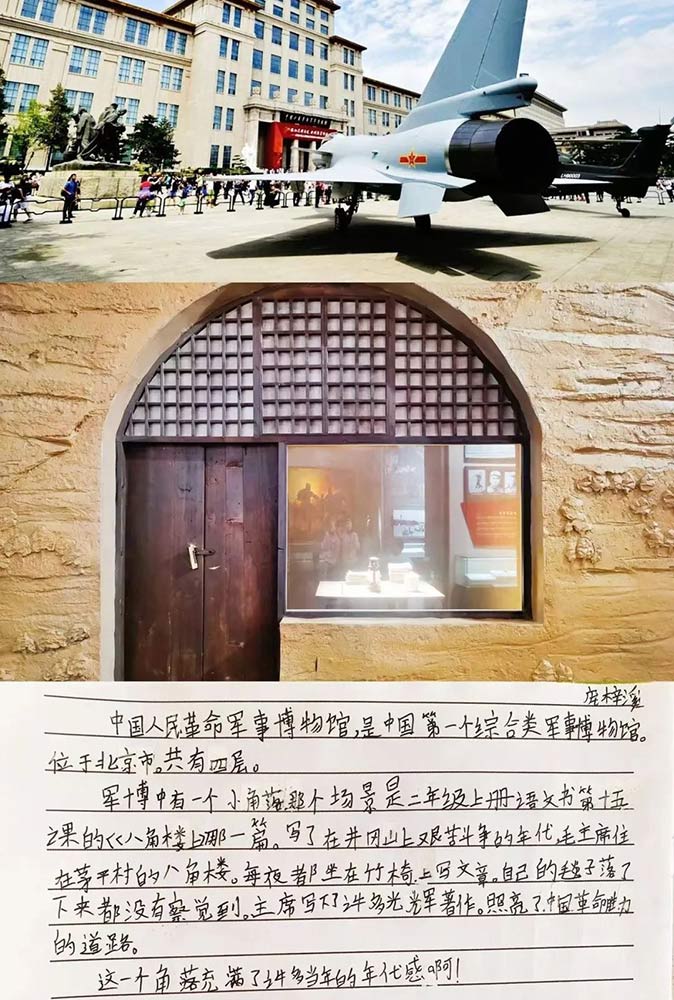 梓溪
中国人民革命军事博物馆,是中国第一个综合类军事博物馆。
位于北京市。共有四层。
军博中有一个小角落那个场景是二年级上册语文书第十五
课的《八角楼上》那一篇。写了在井冈山上艰苦斗争的年代,毛主席住
在茅平村的八角楼。每夜都坐在竹椅上写文章。自己的毯子落了
下来都没有察觉到。主席写下了许多光辉著作。照亮了中国革命胜利
的道路。
这一个角落充满了许多当年的年代感啊!